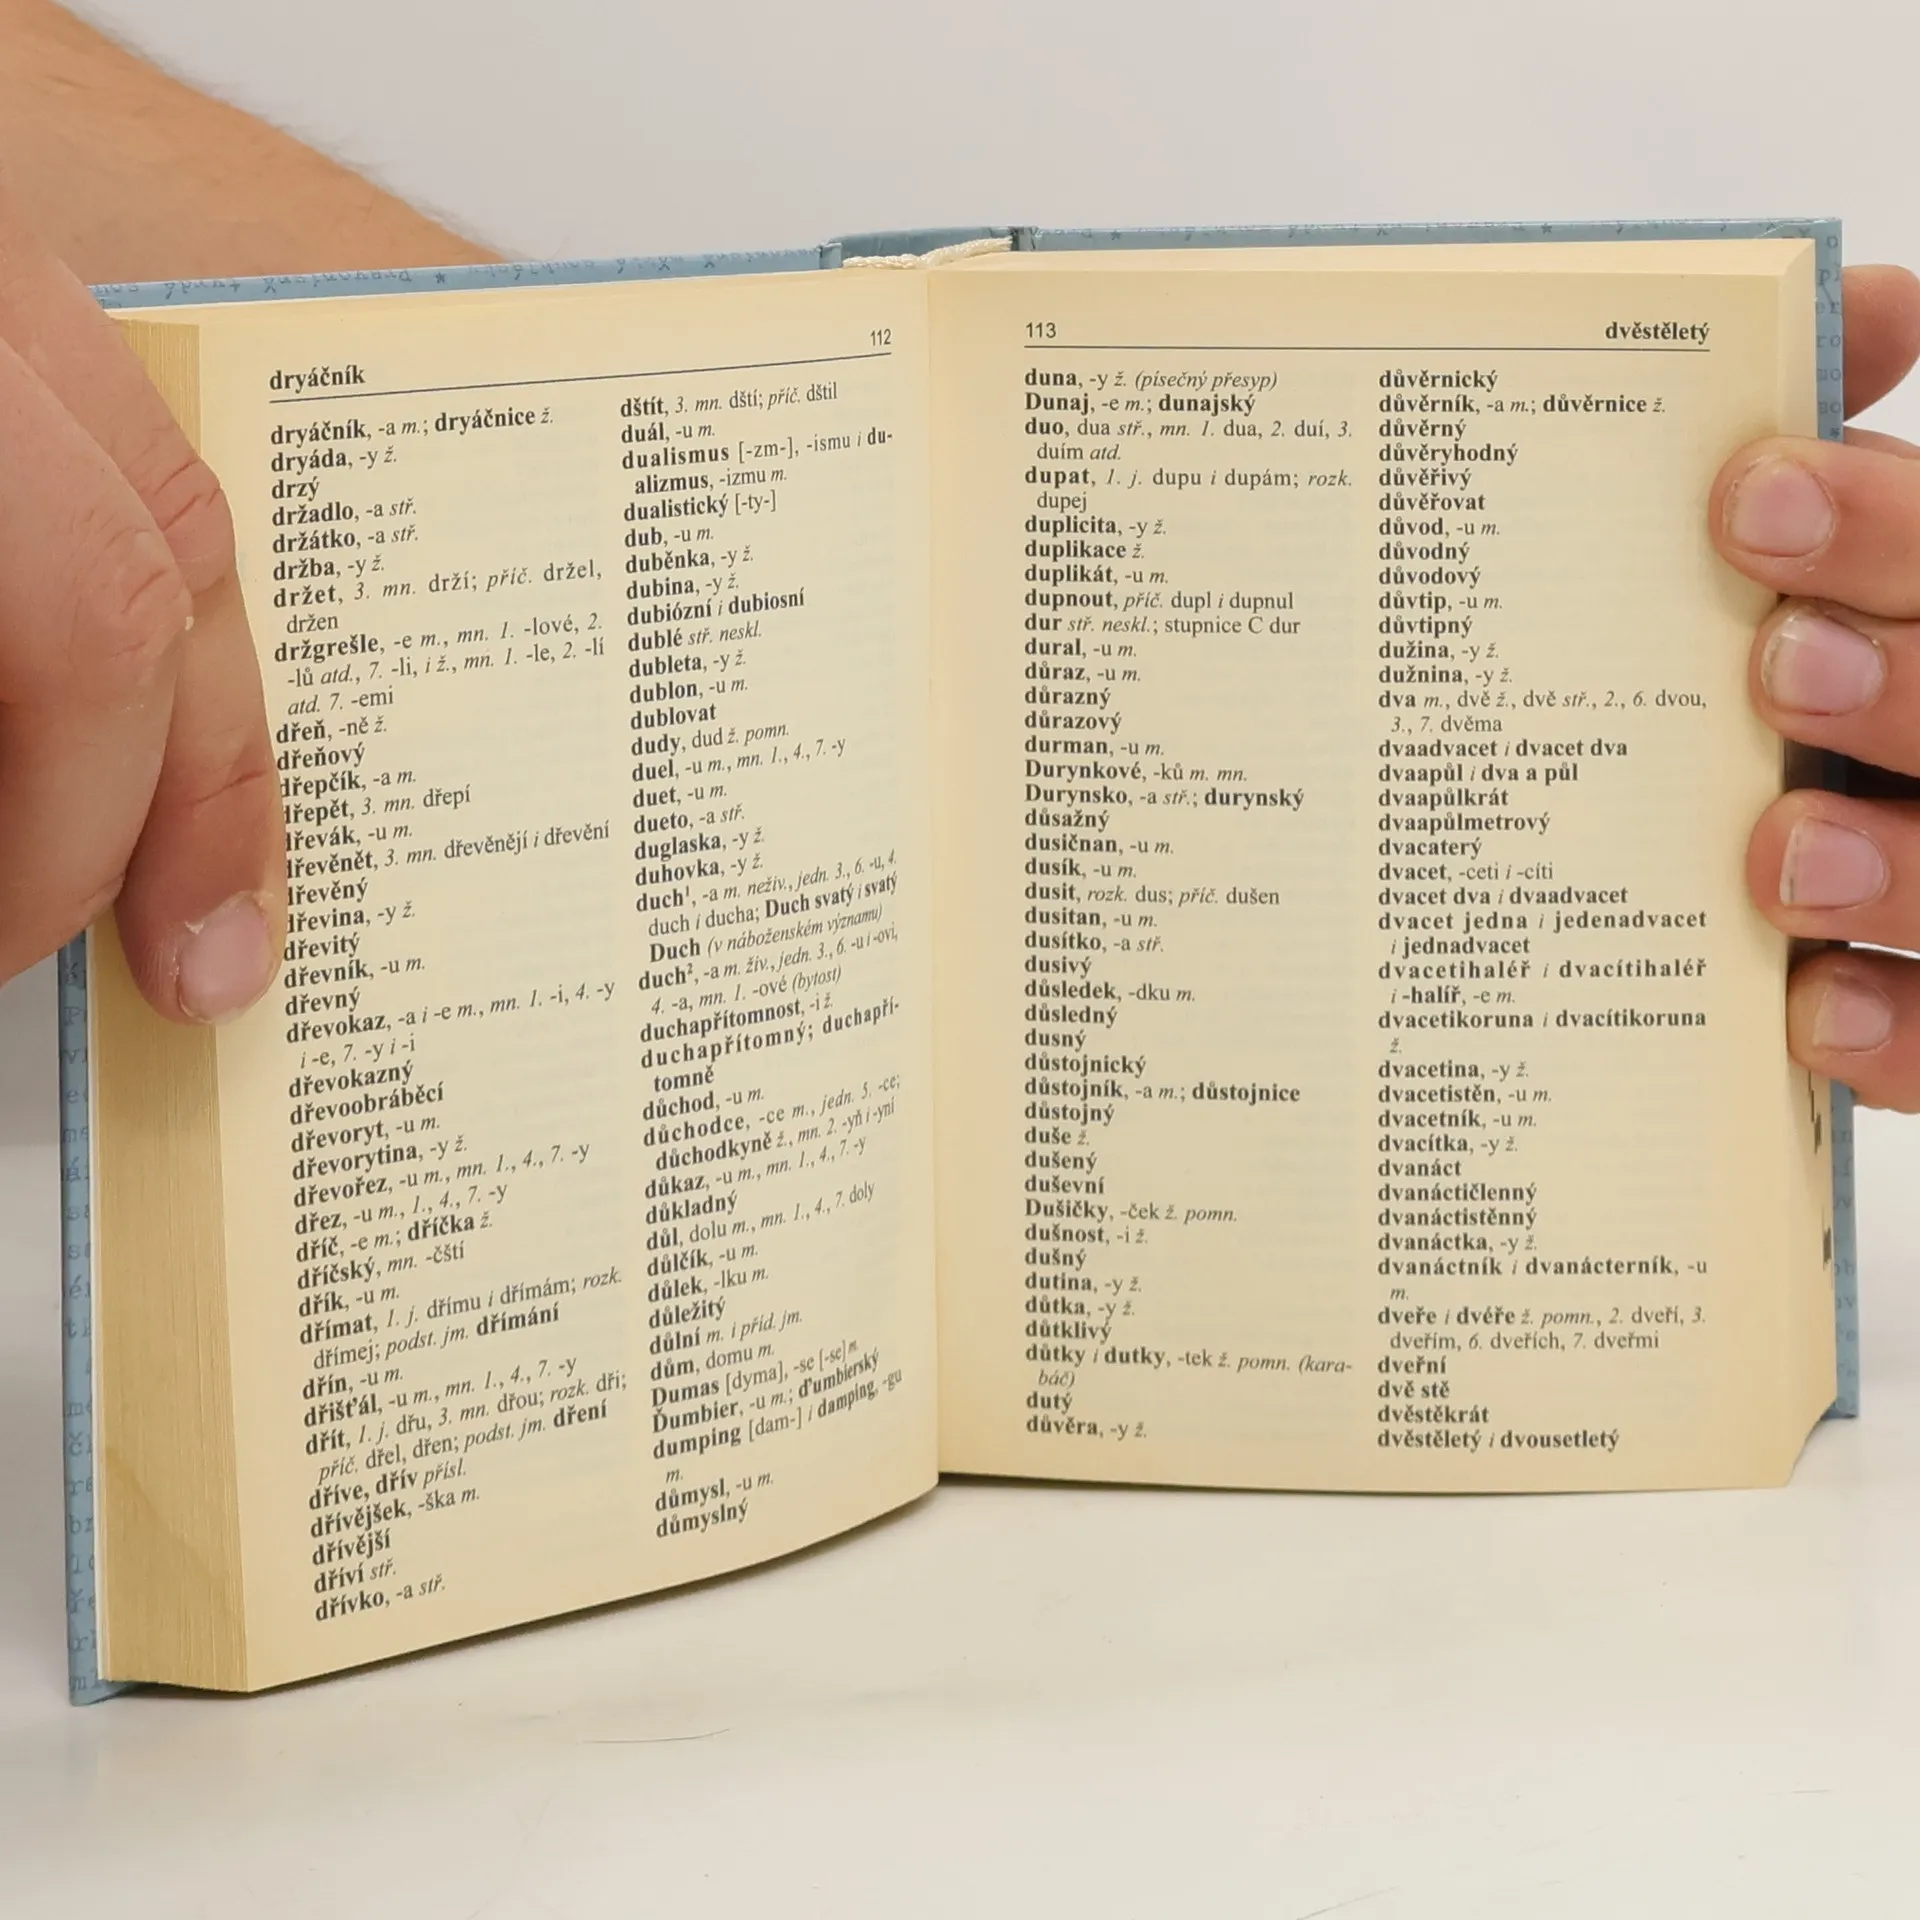 dryáčník
112
dryáčník, -a m.; dryáčnice ž.
dryáda, -y ž.
drzý
držadlo, -a stř.
držátko, -a stř.
držba, -y ž.
držet, 3. mn. drží; příč. držel,
držen
držgrešle, -e m., mn. 1. -lové, 2.
-lů atd., 7. -li, i ž., mn. 1. -le, 2. -lí
atd. 7. -emi
dřeň, -ně ž.
dřeňový
dřepčík, -a m.
dřepět, 3. mn. dřepí
dřevák, -u m.
dřevěnět, 3. mn. dřevěnějí i dřevění
dřevěný
dřevina, -y ž.
dřevitý
dřevník, -u m.
dřevný
dřevokaz, -a i -e m., mn. 1. -i, 4. -y
i -e, 7. -y i -i
dřevokazný
dřevoobráběcí
dřevoryt, -u m.
dřevorytina, -y ž.
dřevořez, -u m., mn. 1., 4., 7. -y
dřez, -u m., 1., 4., 7. -y
dříč, -e m.; dříčka ž.
dříčský, mn. -čští
dřík, -u m.
dřímat, 1. j. dřímu i dřímám; rozk.
dřímej; podst. jm. dřímání
dřín, -u m.
dřišťál, -u m., mn. 1., 4., 7. -y
dřít, 1. j. dřu, 3. mn. dřou; rozk. dři;
příč. dřel, dřen; podst. jm. dření
dříve, dřív přísl.
dřívějšek, -ška m.
dřívější
dříví stř.
dřívko, -a stř.
dštít, 3. mn. dští; příč. dštil
duál, -u m.
dualismus [-zm-], -ismu i du-
alizmus, -izmu m.
dualistický [-ty-]
dub, -u m.
duběnka, -y ž.
dubina, -y ž.
dubiózní i dubiosní
dublé stř. neskl.
dubleta, -y ž.
dublon, -u m.
dublovat
dudy, dud ž. pomn.
duel, -u m., mn. 1., 4., 7. -y
duet, -u m.
dueto, -a stř.
duglaska, -y ž.
duhovka, -y ž.
duch¹, -a m. neživ., jedn. 3., 6. -u, 4.
duch i ducha; Duch svatý i svatý
Duch (v náboženském významu)
duch², -a m. živ., jedn. 3., 6. -u i -ovi,
4. -a, mn. 1. -ové (bytost)
duchapřítomnost, -i ž.
duchapřítomný; duchapří-
tomně
důchod, -u m.
důchodce, -ce m., jedn. 5. -ce;
důchodkyně ž., mn. 2. -yň i -yní
důkaz, -u m., mn. 1., 4., 7. -y
důkladný
důl, dolu m., mn. 1., 4., 7. doly
důlčík, -u m.
důlek, -lku m.
důležitý
důlní m. i příd. jm.
dům, domu m.
Dumas [dyma], -se [-se] m.
Ďumbier, -u m.; ďumbierský
dumping [dam-] i damping, -gu
m.
důmysl, -u m.
důmyslný
113
dvěstěletý
duna, -y ž. (písečný přesyp)
Dunaj, -e m.; dunajský
duo, dua stř., mn. 1. dua, 2. duí, 3.
duím atd.
dupat, 1. j. dupu i dupám; rozk.
dupej
duplicita, -y ž.
duplikace ž.
duplikát, -u m.
dupnout, příč. dupl i dupnul
dur stř. neskl.; stupnice C dur
dural, -u m.
důraz, -u m.
důrazný
důrazový
durman, -u m.
Durynkové, -ků m. mn.
Durynsko, -a stř.; durynský
důsažný
dusičnan, -u m.
dusík, -u m.
dusit, rozk. dus; příč. dušen
dusitan, -u m.
dusítko, -a stř.
dusivý
důsledek, -dku m.
důsledný
dusný
důstojnický
důstojník, -a m.; důstojnice
důstojný
duše ž.
dušený
duševní
Dušičky, -ček ž. pomn.
dušnost, -i ž.
dušný
dutina, -y ž.
důtka, -y ž.
důtklivý
důtky i dutky, -tek ž. pomn. (kara-
báč)
dutý
důvěra, -y ž.
důvěrnický
důvěrník, -a m.; důvěrnice ž.
důvěrný
důvěryhodný
důvěřivý
důvěřovat
důvod, -u m.
důvodný
důvodový
důvtip, -u m.
důvtipný
dužina, -y ž.
dužnina, -y ž.
dva m., dvě ž., dvě stř., 2., 6. dvou,
3., 7. dvěma
dvaadvacet i dvacet dva
dvaapůl i dva a půl
dvaapůlkrát
dvaapůlmetrový
dvacaterý
dvacet, -ceti i -cíti
dvacet dva i dvaadvacet
dvacet jedna i jedenadvacet
i jednadvacet
dvacetihaléř i dvacítihaléř
i -halíř, -e m.
dvacetikoruna i dvacítikoruna
ž.
dvacetina, -y ž.
dvacetistěn, -u m.
dvacetník, -u m.
dvacítka, -y ž.
dvanáct
dvanáctičlenný
dvanáctistěnný
dvanáctka, -y ž.
dvanáctník i dvanácterník, -u
m.
dveře i dvéře ž. pomn., 2. dveří, 3.
dveřím, 6. dveřích, 7. dveřmi
dveřní
dvě stě
dvěstěkrát
dvěstěletý i dvousetletý